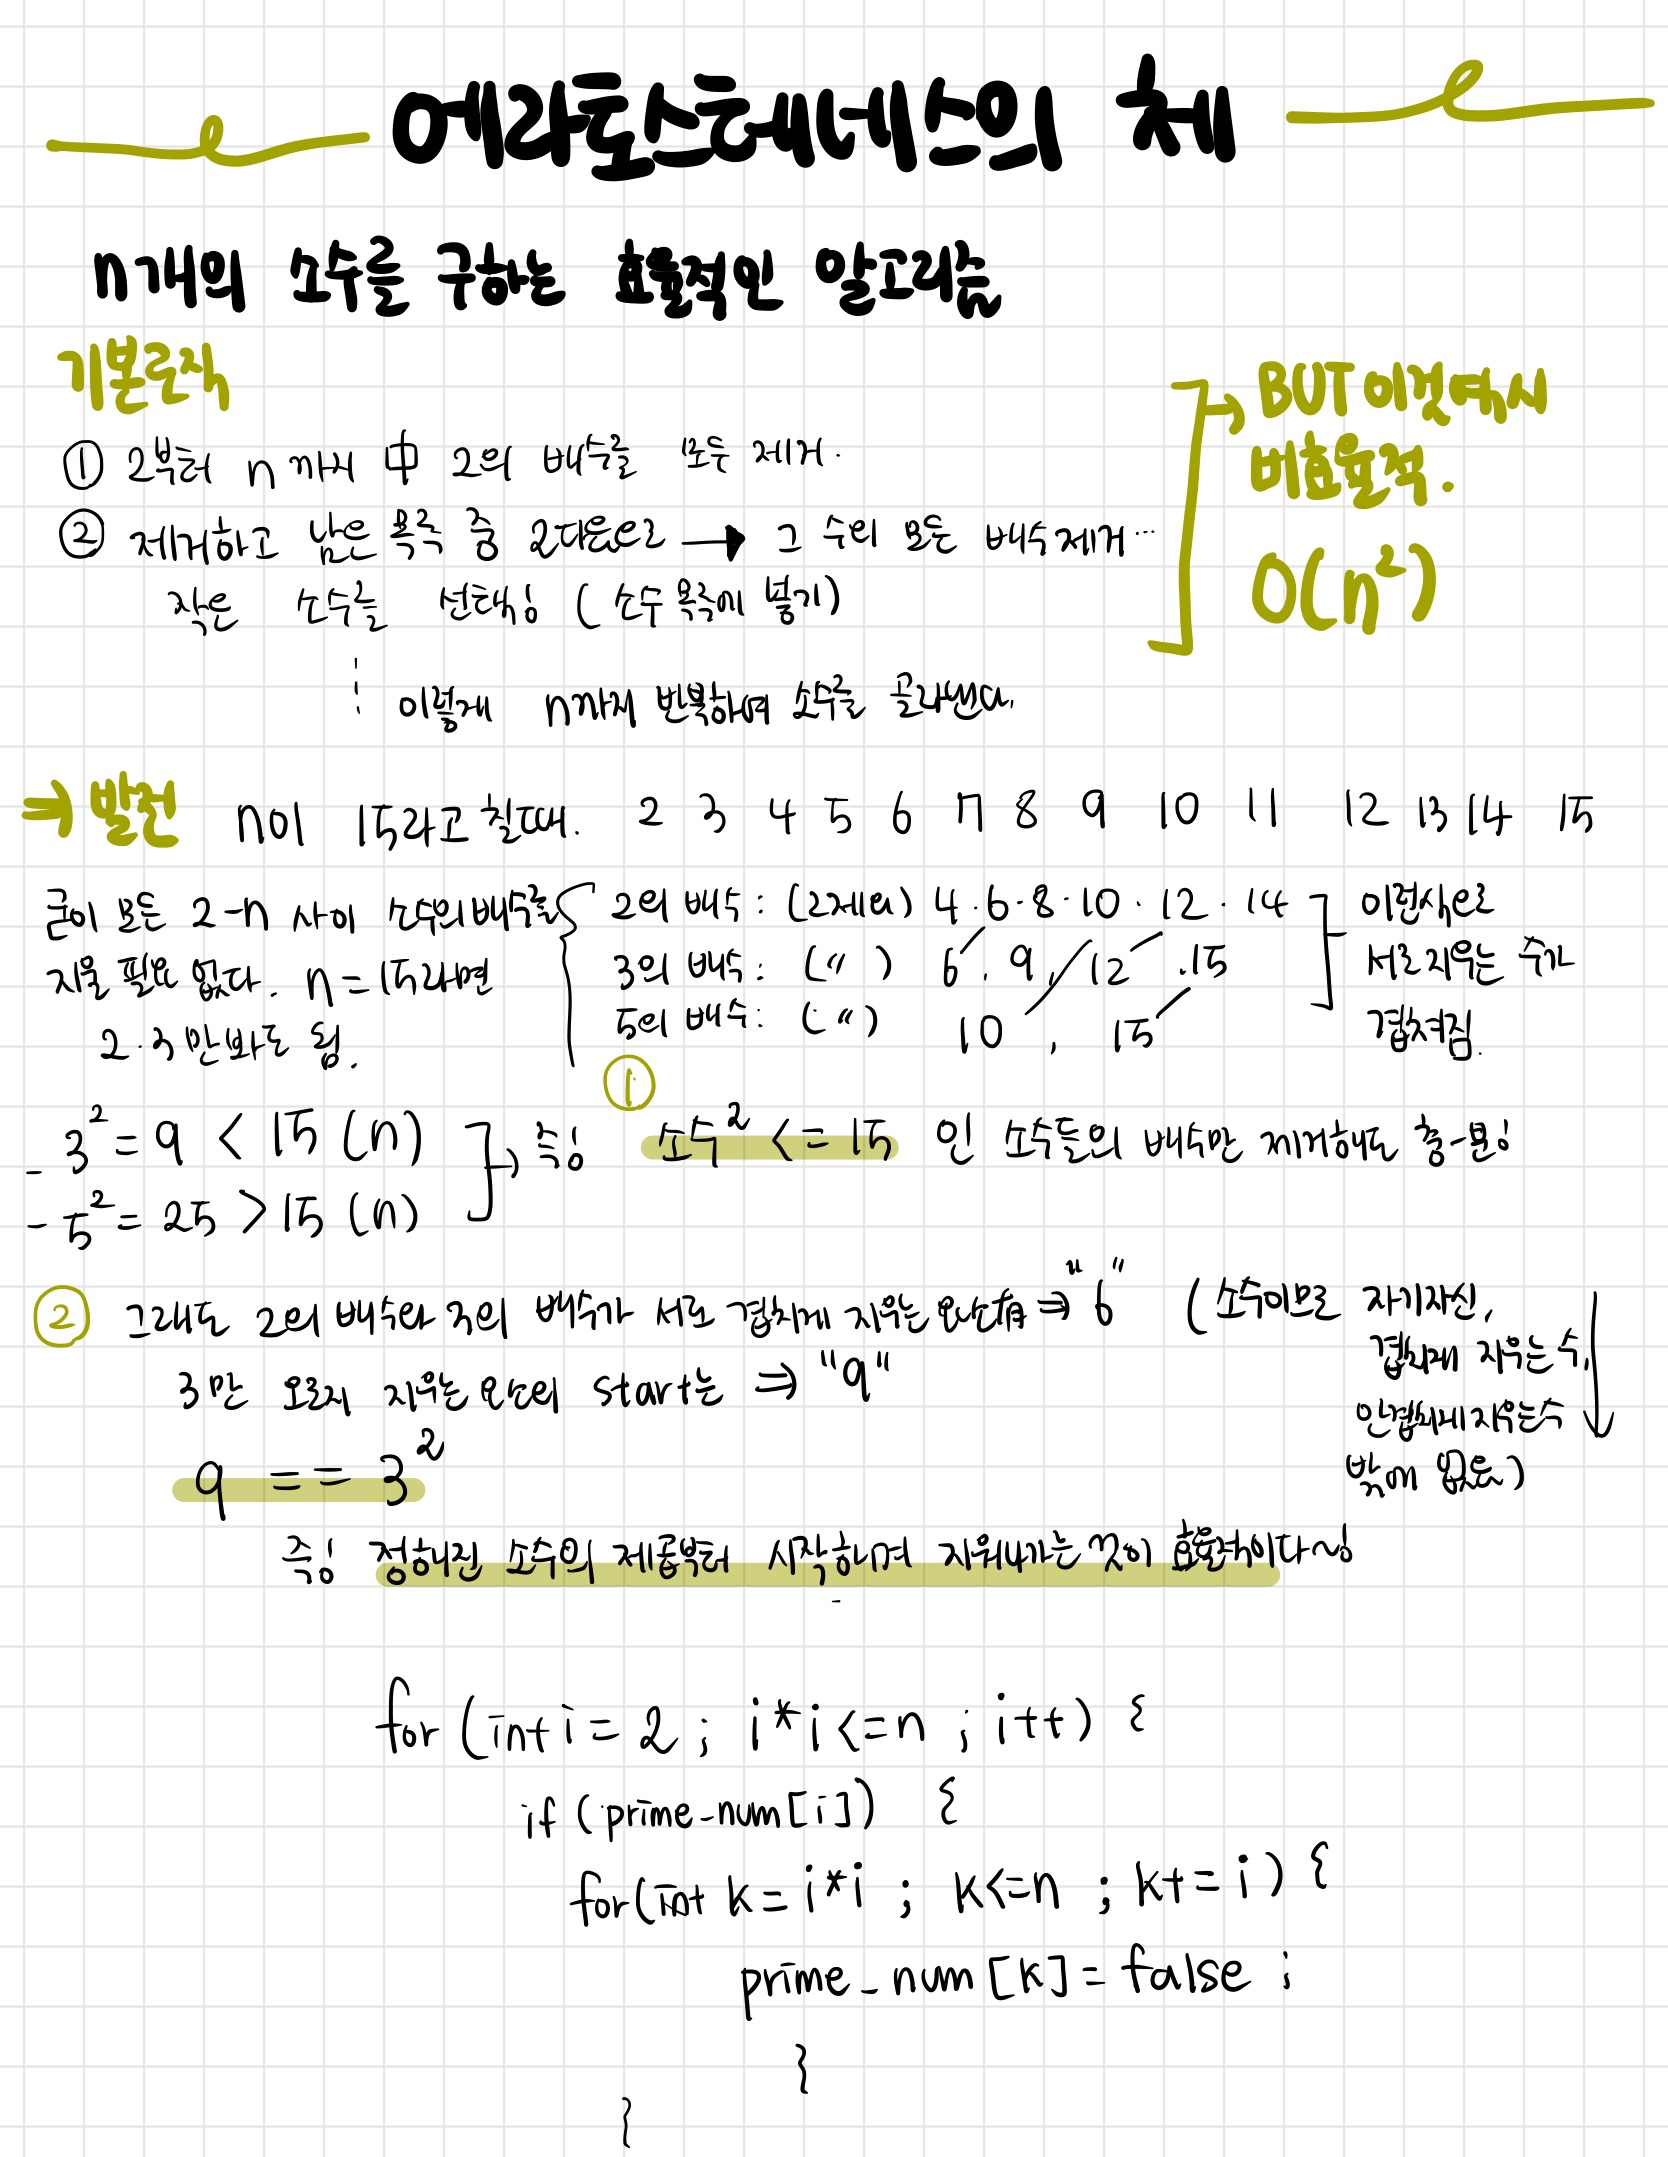 에라토스테네스의 체
n개의 소수를 구하는 효율적인 알고리즘
기본로직
① 2부터 n까지 中 2의 배수를 모두 제거.
② 제거하고 남은 목록 중 2다음으로 → 그 수의 모든 배수제거...
작은 소수를 선택! (소수 목록에 넣기)
이렇게 n까지 반복하여 소수를 골라낸다.
→ BUT 이것역시
비효율적.
O(n²)
⇒ 발전 n이 15라고 칠때. 2 3 4 5 6 7 8 9 10 11 12 13 14 15
굳이 모든 2-n 사이 소수의배수를
지울 필요 없다. n=15라면
2·3만봐도 됨.
2의 배수: (2제외) 4·6·8·10·12·14
3의 배수: (〃) 6, 9, 12, 15
5의 배수: (〃) 10, 15
이런식으로
서로지우는 수가
겹쳐짐.
- 3² = 9 < 15 (n)
- 5² = 25 > 15 (n)
→ 즉! ① 소수² <= 15 인 소수들의 배수만 제거해도 충-분!
② 그래도 2의 배수와 3의 배수가 서로 겹치게 지우는 요소有 ⇒ "6"
3만 오로지 지우는 요소의 start는 ⇒ "9"
(소수이므로 자기자신,
겹치게 지우는 수,
안겹치게지우는수
밖에 없음)
9 == 3²
즉! 정해진 소수의 제곱부터 시작하며 지워나가는 것이 효율적이다~!
for (int i = 2 ; i*i <= n ; i++) {
if (prime_num[i]) {
for(int k = i*i ; k<=n ; k+= i) {
prime_num [k] = false ;
}
}